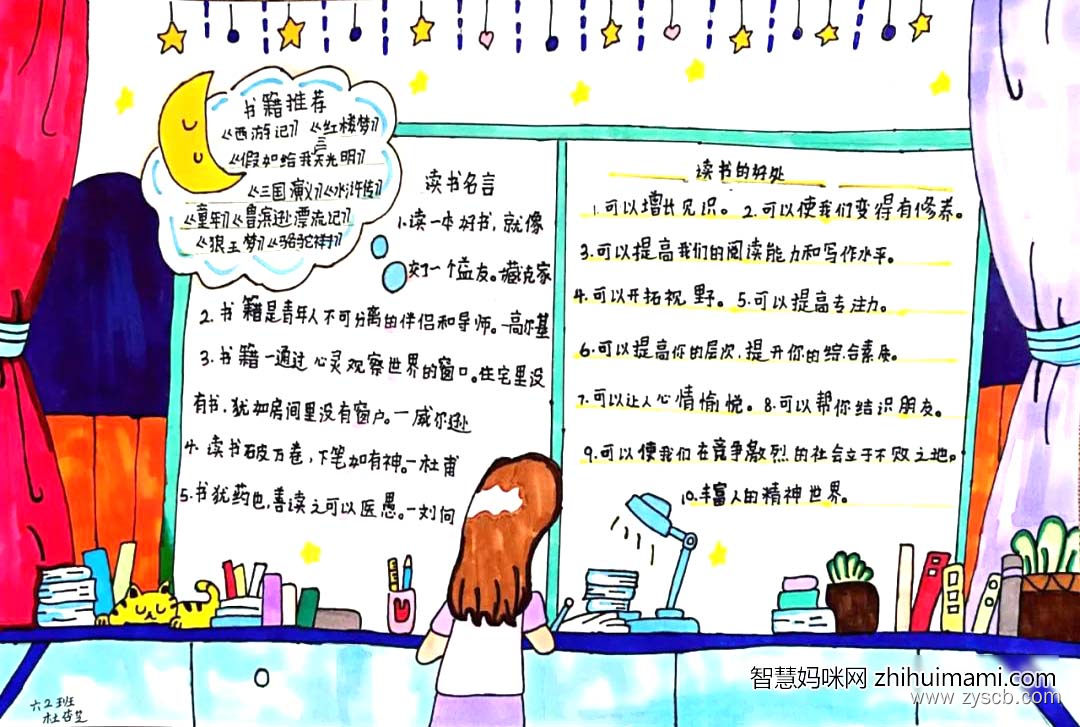 书籍推荐
《西游记》《红楼梦》
《假如给我三天光明》
《三国演义》《水浒传》
《童年》《鲁滨逊漂流记》
《狼王梦》《骆驼祥子》
读书名言
1.读一本好书，就像
交了一个益友。臧克家
2.书籍是青年人不可分离的伴侣和导师。—高尔基
3.书籍—通过心灵观察世界的窗口。住宅里没
有书，犹如房间里没有窗户。—威尔逊
4.读书破万卷，下笔如有神。—杜甫
5.书犹药也，善读之可以医愚。—刘向
读书的好处
1.可以增长见识。2.可以使我们变得有修养。
3.可以提高我们的阅读能力和写作水平。
4.可以开拓视野。5.可以提高专注力。
6.可以提高你的层次，提升你的综合素质。
7.可以让人心情愉悦。8.可以帮你结识朋友。
9.可以使我们在竞争激烈的社会立于不败之地。
10.丰富人的精神世界。
六2班
智慧妈咪网 zhihuimami.com
www.zyscb.com